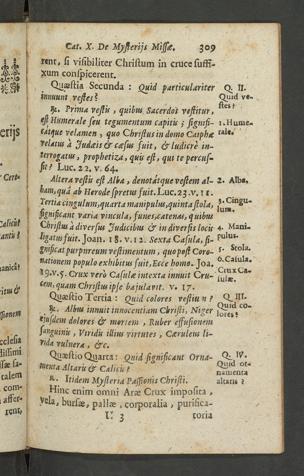 Cat. X. De Mysterijs Missæ. 309
rent, si visibiliter Christum in cruce suffi-
xum conspicerent.
Quæstia Secunda : Quid particulariter
innuunt vestes?
Q. II.
Quid ve-
stes?
R. Prima vestis, quibus Sacerdos vestitur,
est Humerale seu tegumentum capitis ; signifi-
catque velamen, quo Christus in domo Caiphæ
velatus à Judæis & cæsus fuit, & ludicrè in-
terrogatus, prophetiza, quis est, qui te percus-
sit? Luc. 22. v. 64.
1. Hume-
rale.
Altera vestis est Alba, denotátque vestem al-
bam, quâ ab Herode spretus fuit. Luc. 23. v. 11.
2. Alba.
Tertia cingulum, quarta manipulus, quinta stola,
significant varia vincula, funes, catenas, quibus
Christus à diversis Judicibus & in diversis locis
ligatus fuit. Joan. 18. v. 12. Sexta Casula, si-
gnificat purpureum vestimentum, quo post Coro-
nationem populo exhibitus fuit, Ecce homo. Joa.
19. v. 5. Crux verò Casulæ intexta innuit Cru-
cem, quam Christus ipse bajulavit. v. 17.
3. Cingu-
lum.
4. Mani-
pulus.
5. Stola.
6. Casula.
Crux Ca-
sulæ.
Quæstio Tertia : Quid colores vestium?
Q. III.
Quid co-
lores?
R. Albus innuit innocentiam Christi, Niger
ejusdem dolores & mortem, Ruber effusionem
sanguinis, Viridis illius virtutes, Cærulens li-
vida vulnera, &c.
Quæstio Quarta: Quid significant Orna-
menta Altaris & Calicis?
Q. IV.
Quid or-
namenta
altaris?
R. Itidem Mysteria Passionis Christi.
Hinc enim omni Aræ Crux imposita,
vela, bursæ, pallæ, corporalia, purifica-
V 3 toria